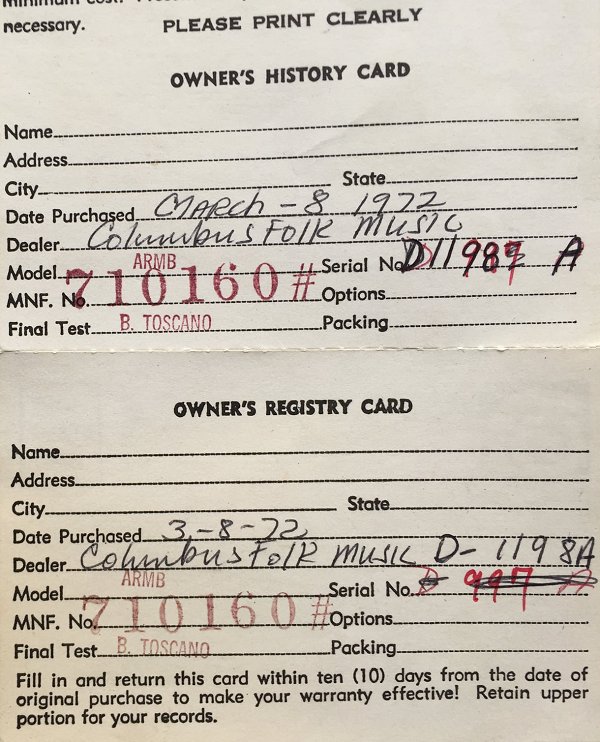 necessary. PLEASE PRINT CLEARLY
OWNER'S HISTORY CARD
Name
Address
City State
Date Purchased March - 8 1972
Dealer Columbus Folk Music
Model ARMB Serial No. A
MNF. No. 710160# Options
Final Test B. TOSCANO Packing
OWNER'S REGISTRY CARD
Name
Address
City State
Date Purchased 3-8-72
Dealer Columbus Folk Music D-1198A
Model ARMB Serial No. 997
MNF. No. 710160# Options
Final Test B. TOSCANO Packing
Fill in and return this card within ten (10) days from the date of
original purchase to make your warranty effective! Retain upper
portion for your records.